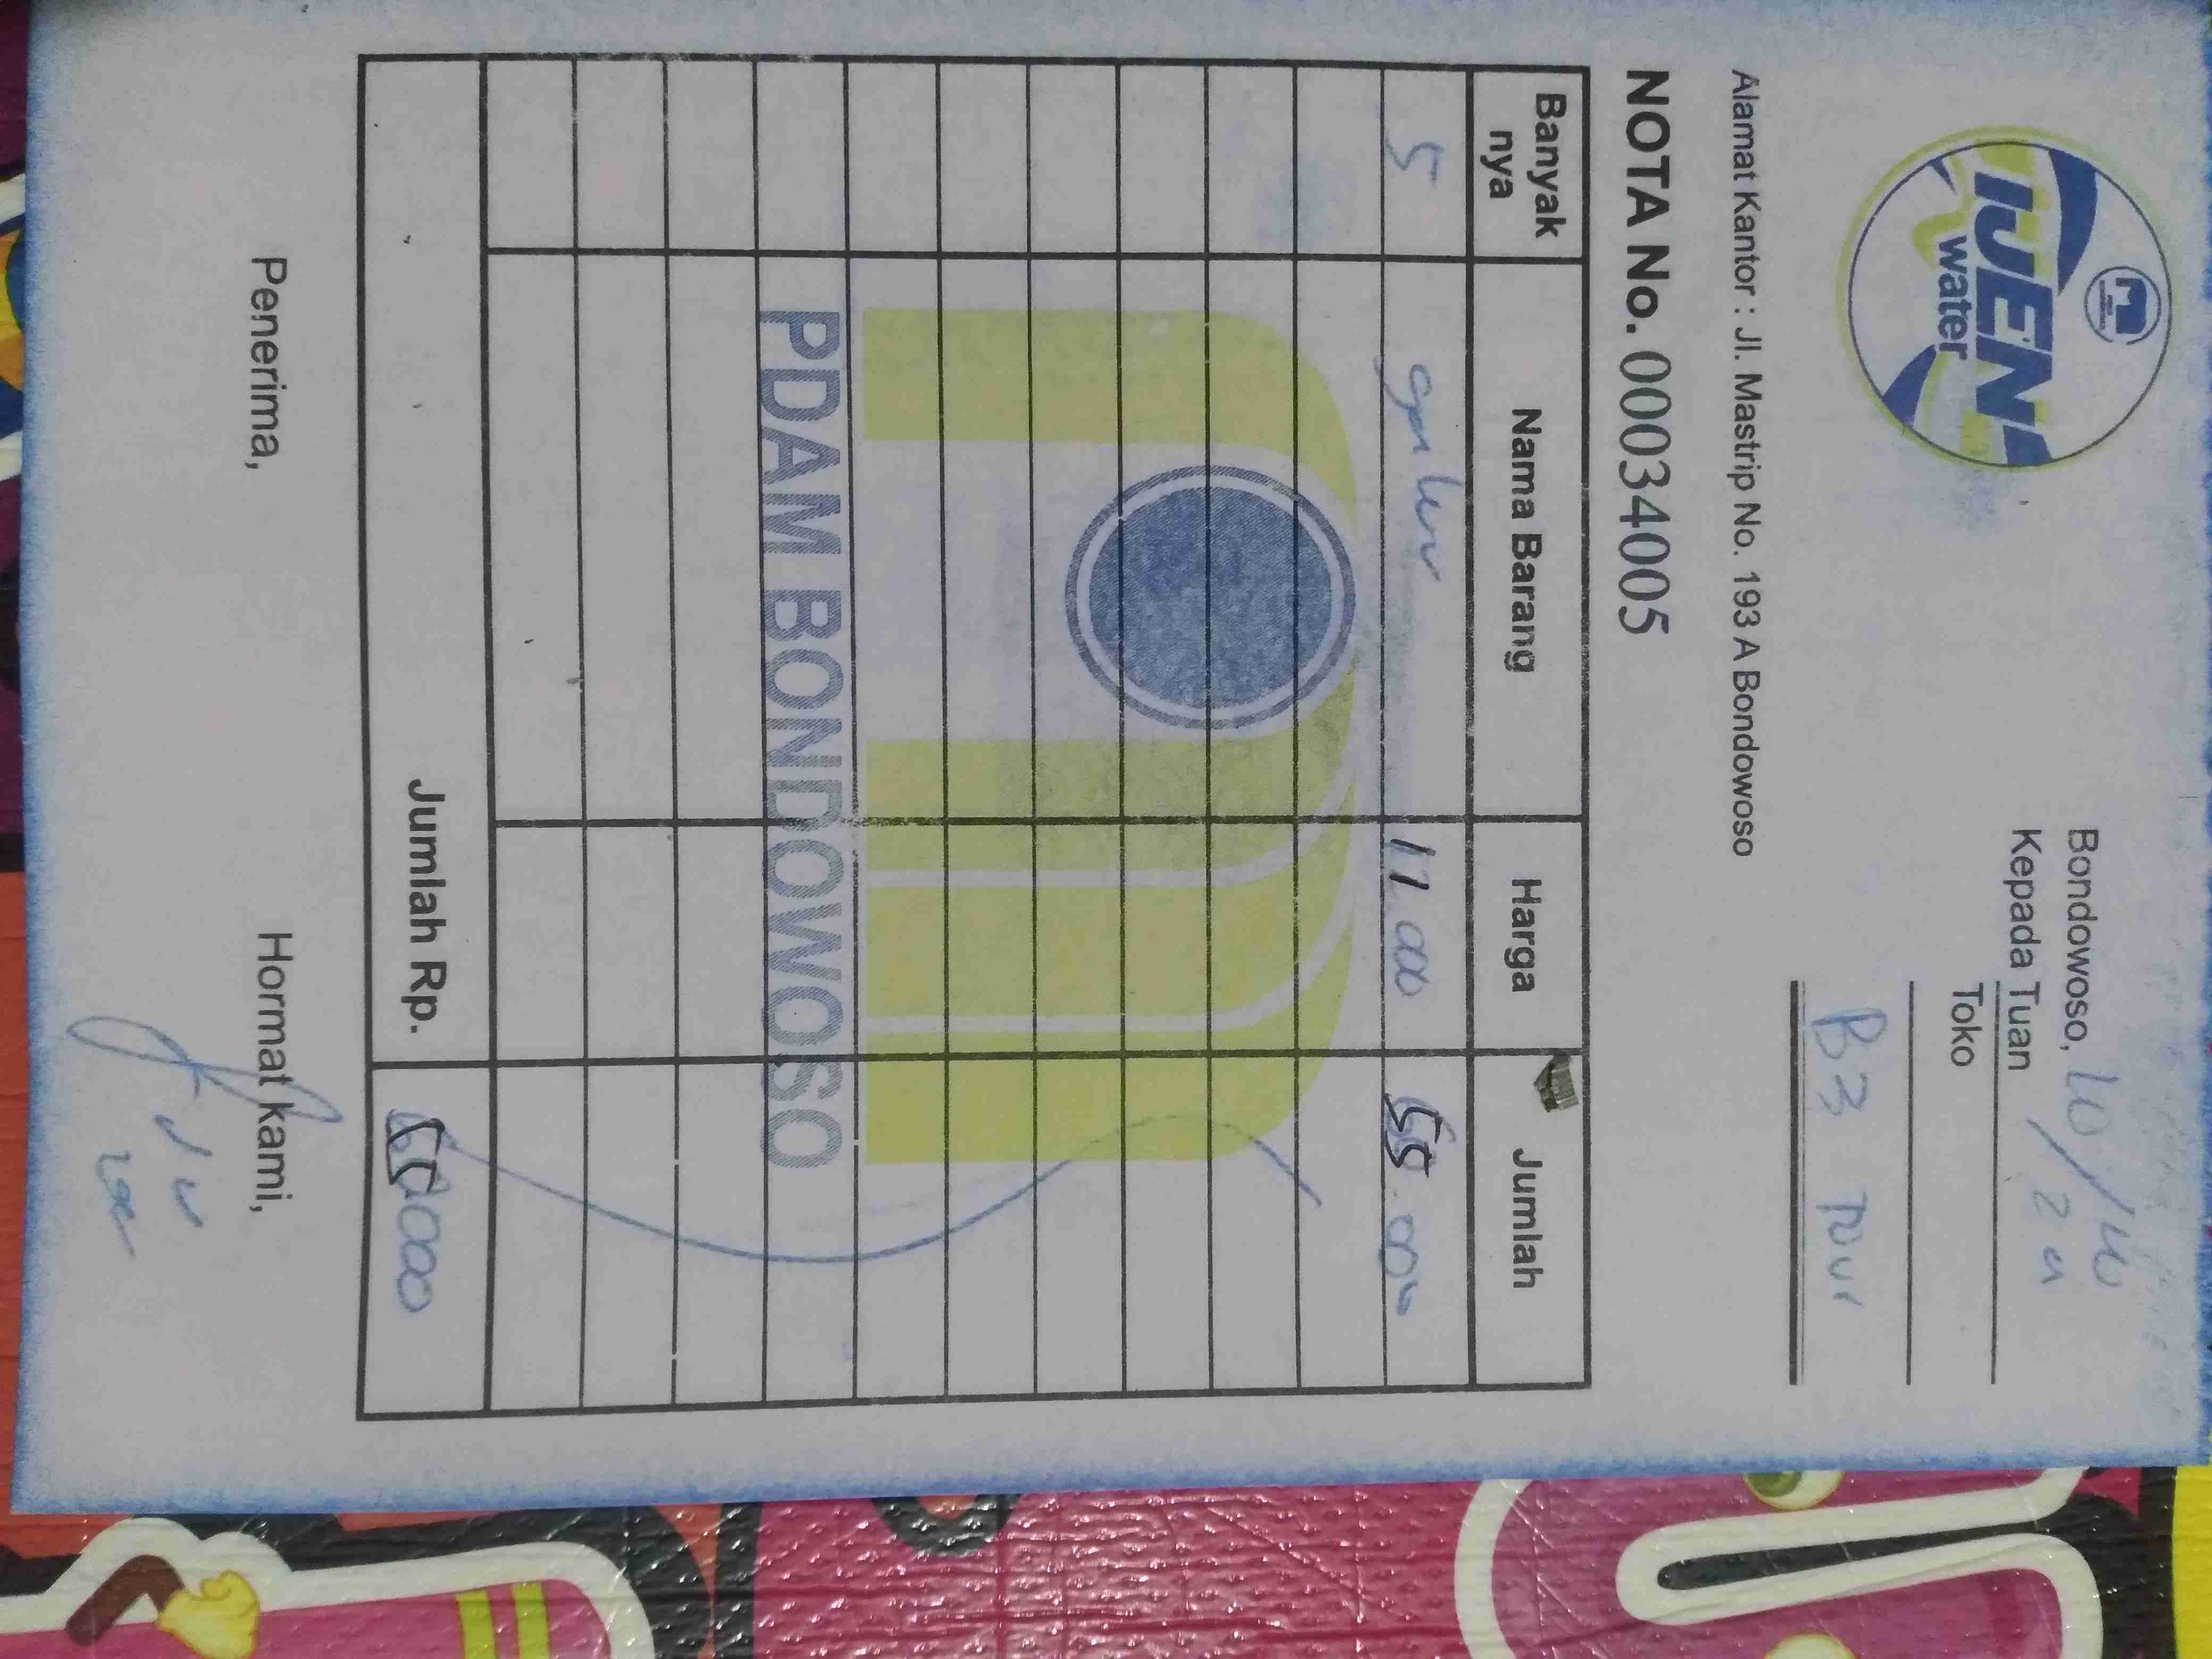 IJEN
water
Bondowoso,
Kepada Tuan
Toko
B3 Tour
Alamat Kantor : Jl. Mastrip No. 193 A Bondowoso
NOTA No. 00034005
Banyak nya Nama Barang Harga Jumlah
5 galon 11.000 55.000
PDAM BONDOWOSO
Jumlah Rp. 55000
Penerima, Hormat kami,